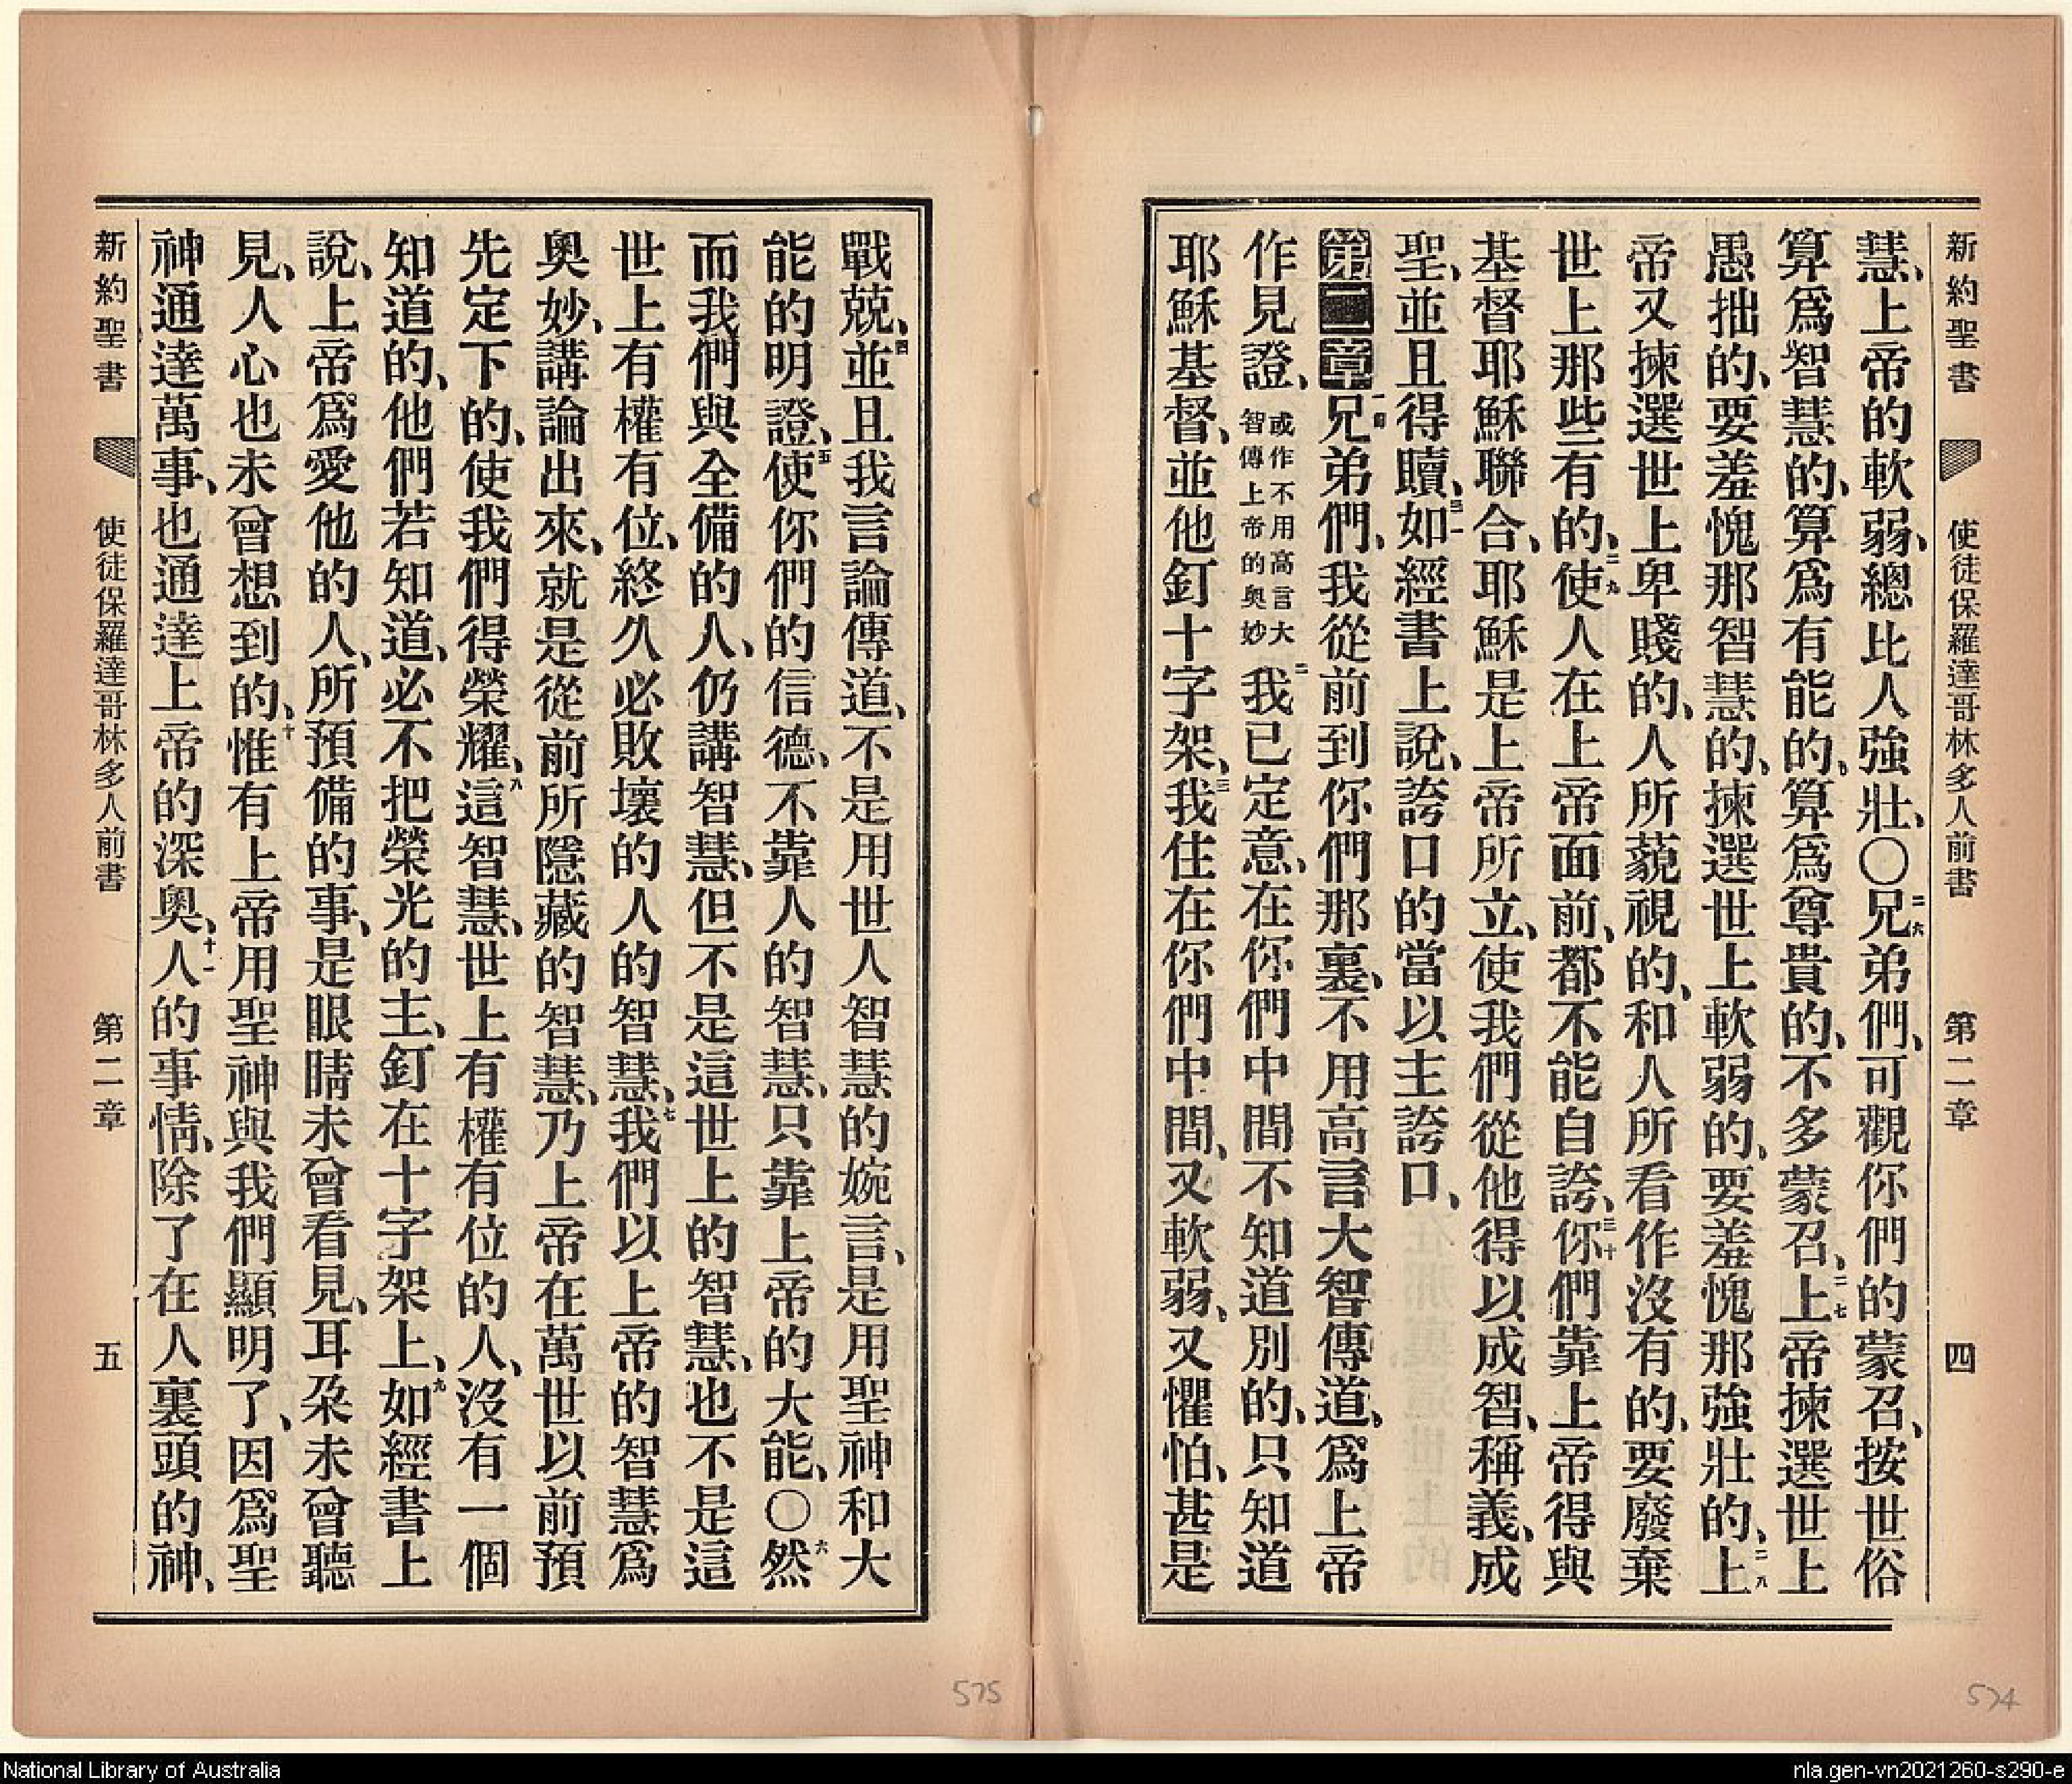 新約聖書 使徒保羅達哥林多人前書 第二章 四
慧、上帝的軟弱、總比人強壯、〇二六兄弟們、可觀你們的蒙召、按世俗
算爲智慧的、算爲有能的、算爲尊貴的、不多蒙召、二七上帝揀選世上
愚拙的、要羞愧那智慧的、揀選世上軟弱的、要羞愧那強壯的、二八上
帝又揀選世上卑賤的、人所藐視的、和人所看作沒有的、要廢棄
世上那些有的、二九使人在上帝面前、都不能自誇、三十你們靠上帝得與
基督耶穌聯合、耶穌是上帝所立、使我們從他得以成智、稱義、成
聖、並且得贖、三一如經書上說、誇口的當以主誇口、
第二章一兄弟們、我從前到你們那裏、不用高言大智傳道、爲上帝
作見證、或作不用高言大智傳上帝的奧妙二我已定意、在你們中間不知道別的、只知道
耶穌基督、並他釘十字架、三我住在你們中間、又軟弱、又懼怕、甚是
新約聖書 使徒保羅達哥林多人前書 第二章 五
戰兢、四並且我言論傳道、不是用世人智慧的婉言、是用聖神和大
能的明證、五使你們的信德、不靠人的智慧、只靠上帝的大能、〇六然
而我們與全備的人、仍講智慧、但不是這世上的智慧、也不是這
世上有權有位、終久必敗壞的人的智慧、七我們以上帝的智慧爲
奧妙、講論出來、就是從前所隱藏的智慧、乃上帝在萬世以前預
先定下的、使我們得榮耀、八這智慧、世上有權有位的人、沒有一個
知道的、他們若知道、必不把榮光的主、釘在十字架上、九如經書上
說、上帝爲愛他的人、所預備的事、是眼睛未曾看見、耳朶未曾聽
見、人心也未曾想到的、十惟有上帝用聖神與我們顯明了、因爲聖
神通達萬事、也通達上帝的深奧、十一人的事情、除了在人裏頭的神、
575
574
National Library of Australia
nla.gen-vn2021260-s290-e